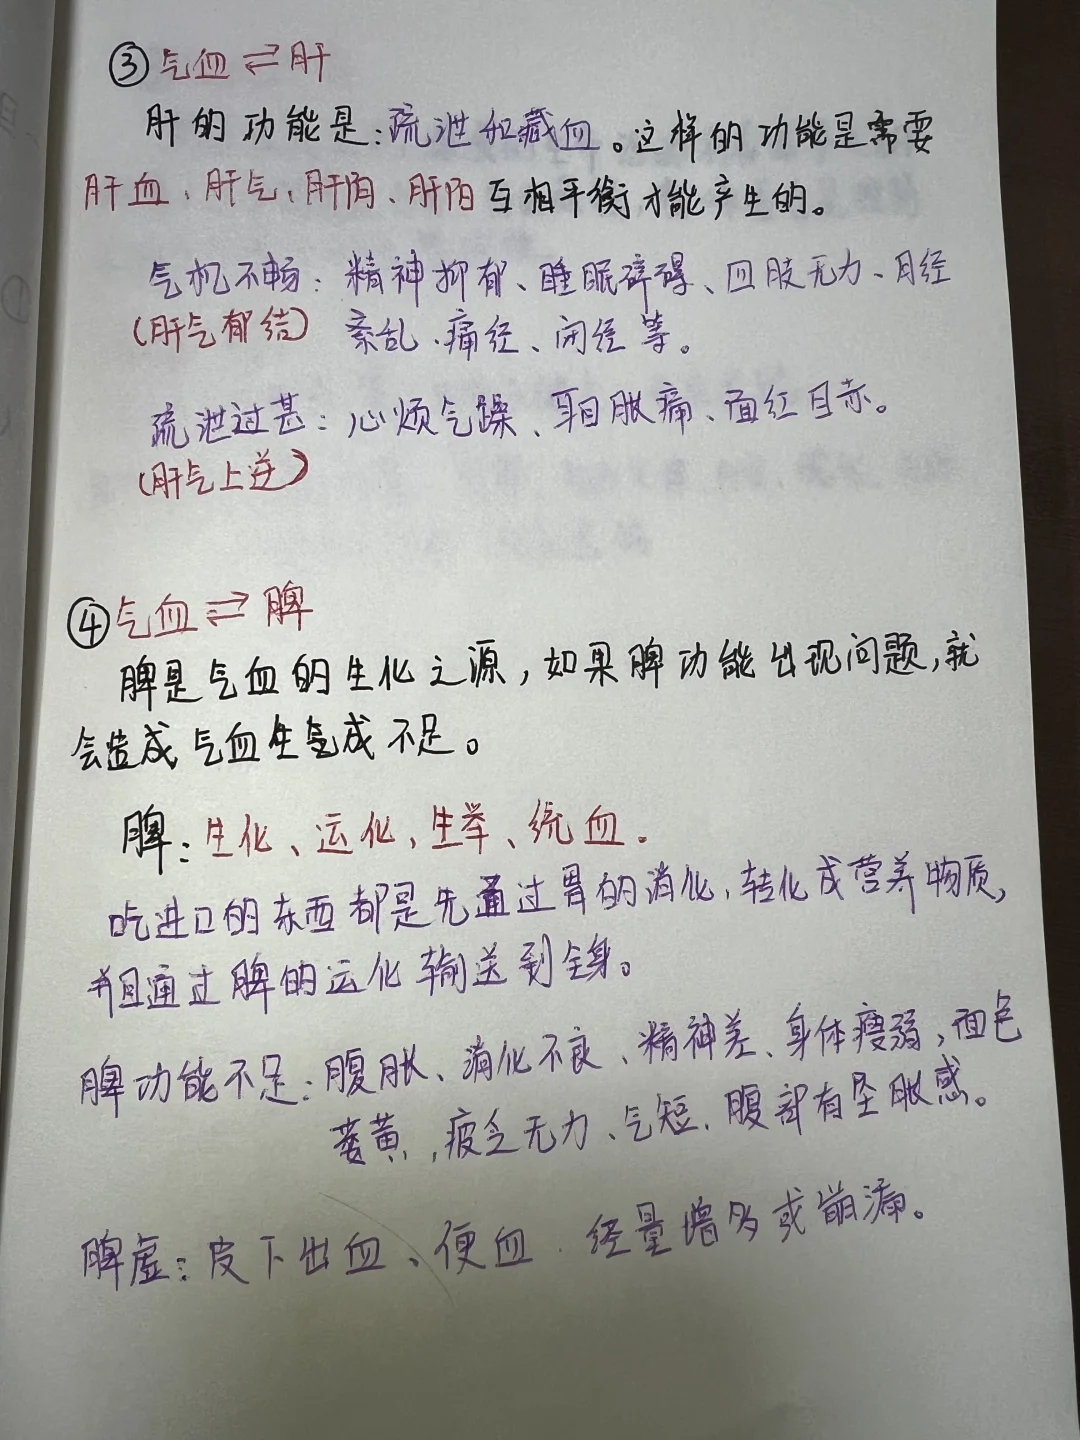 ③气血⇌肝
肝的功能是:疏泄和藏血。这样的功能是需要
肝血、肝气、肝阴、肝阳互相平衡才能产生的。
气机不畅:精神抑郁、睡眠障碍、四肢无力、月经
(肝气郁结) 紊乱、痛经、闭经等。
疏泄过甚:心烦气躁、头目胀痛、面红目赤。
(肝气上逆)
④气血⇌脾
脾是气血的生化之源,如果脾功能出现问题,就
会造成气血生成不足。
脾:生化、运化、生举、统血.
吃进口的东西都是先通过胃的消化,转化成营养物质,
并且通过脾的运化输送到全身。
脾功能不足:腹胀、消化不良、精神差、身体瘦弱,面色
萎黄,疲乏无力、气短.腹部有坠胀感。
脾虚:皮下出血、便血、经量增多或崩漏。